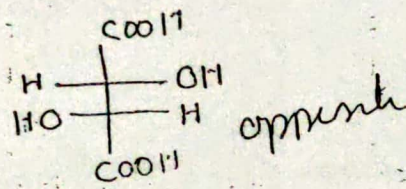 COOH
H OH
HO H
COOH
opposite